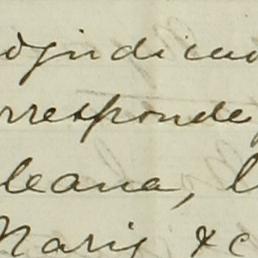 adjudicad
orresponde
leana, l
Maris &c